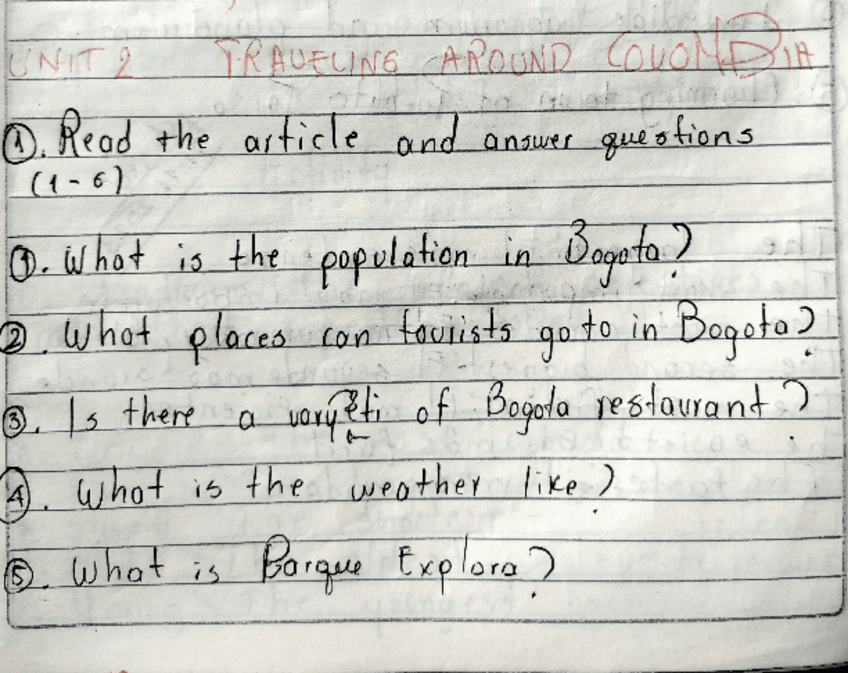 UNIT 2 TRAVELING AROUND COLOMBIA
①. Read the article and answer questions
(1-6)
①. What is the population in Bogota?
②. What places can tourists go to in Bogota?
③. Is there a varyeti of Bogota restaurant?
④. What is the weather like?
⑤. What is Parque Explora?